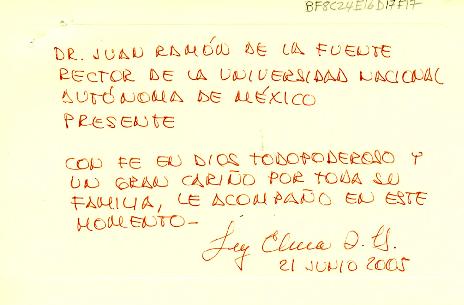 BF8C24E16D17F17
DR. JUAN RAMÓN DE LA FUENTE
RECTOR DE LA UNIVERSIDAD NACIONAL
AUTÓNOMA DE MÉXICO
PRESENTE
CON FE EN DIOS TODOPODEROSO Y
UN GRAN CARIÑO POR TODA SU
FAMILIA, LE ACOMPAÑO EN ESTE
MOMENTO–
21 JUNIO 2005